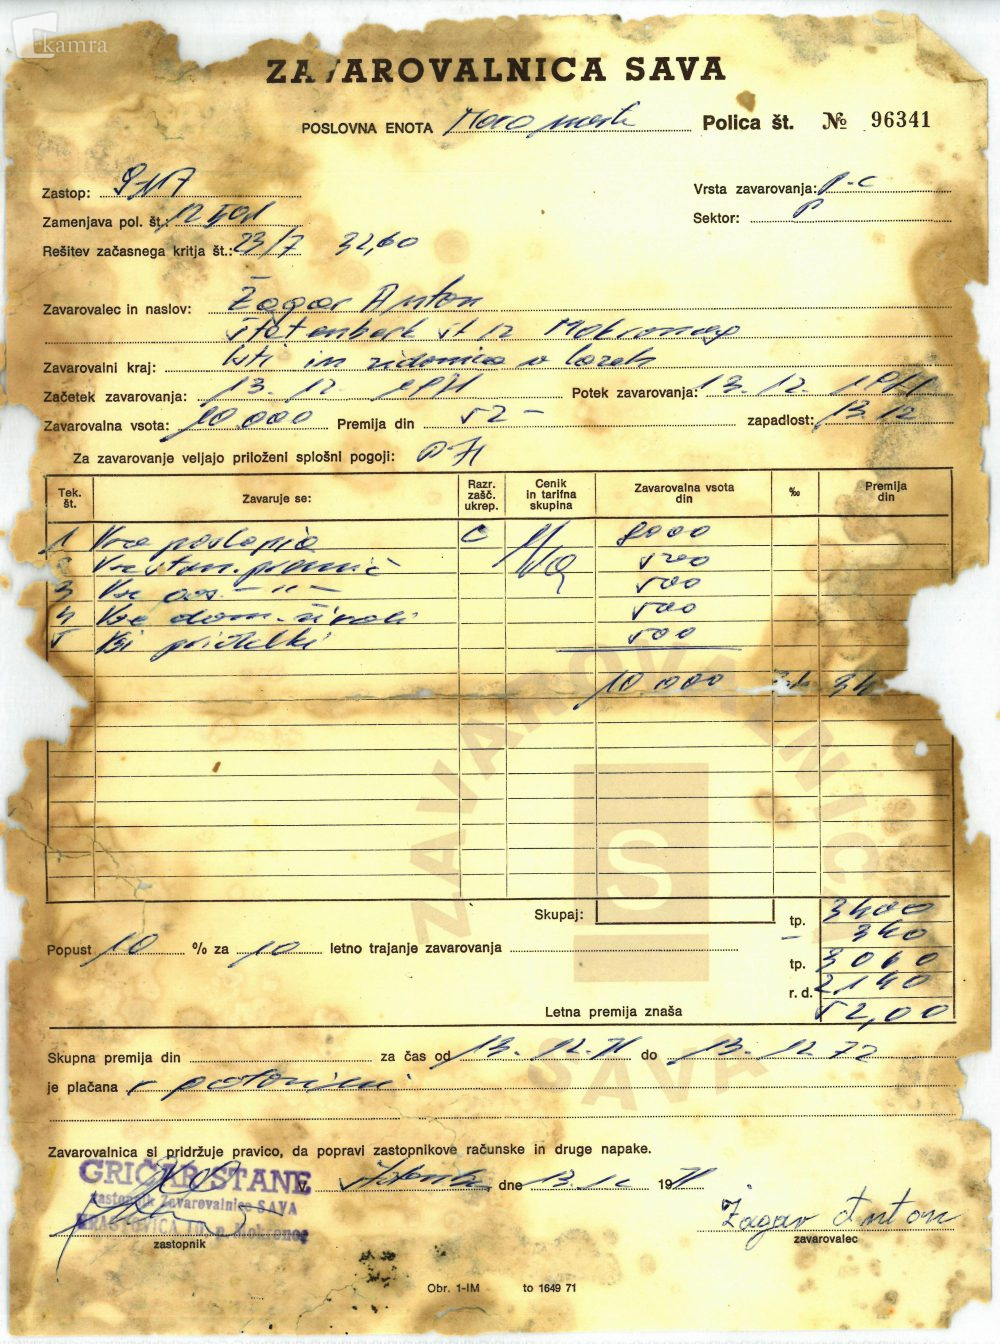 kamra
ZAVAROVALNICA SAVA
POSLOVNA ENOTA Novo mesto Polica št. № 96341
Zastop:
Vrsta zavarovanja: P-C
Zamenjava pol. št.:
Sektor: P
Rešitev začasnega kritja št.: 23/7 32,60
Zavarovalec in naslov: Žagar Anton
št 12 Mokronog
Zavarovalni kraj: in zidanica v
Začetek zavarovanja: 13. 12. 1971 Potek zavarovanja: 13. 12.
Zavarovalna vsota: 10.000 Premija din 52 - zapadlost: 13 12
Za zavarovanje veljajo priloženi splošni pogoji:
Tek. št. Zavaruje se: Razr. zašč. ukrep. Cenik in tarifna skupina Zavarovalna vsota din ‰ Premija din
1 Vsa poslopja C 8000
2 500
3 Vse - " - 500
4 Vse dom. živali 500
5 Vsi pridelki 500
10 000 34
ZAVAROVALNICA
S
SAVA
Skupaj: tp. 3400
- 340
Popust 10 % za 10 letno trajanje zavarovanja
tp. 3060
r. d. 2140
Letna premija znaša 52,00
Skupna premija din za čas od 13. 12. 71 do 13. 12. 72
je plačana v gotovini
Zavarovalnica si pridržuje pravico, da popravi zastopnikove računske in druge napake.
GRIČAR STANE
zastopnik Zavarovalnice SAVA
HRASTOVICA 10, p. Mokronog
v dne 13. 12. 1971
Žagar Anton
zastopnik
zavarovalec
Obr. 1-IM to 1649 71